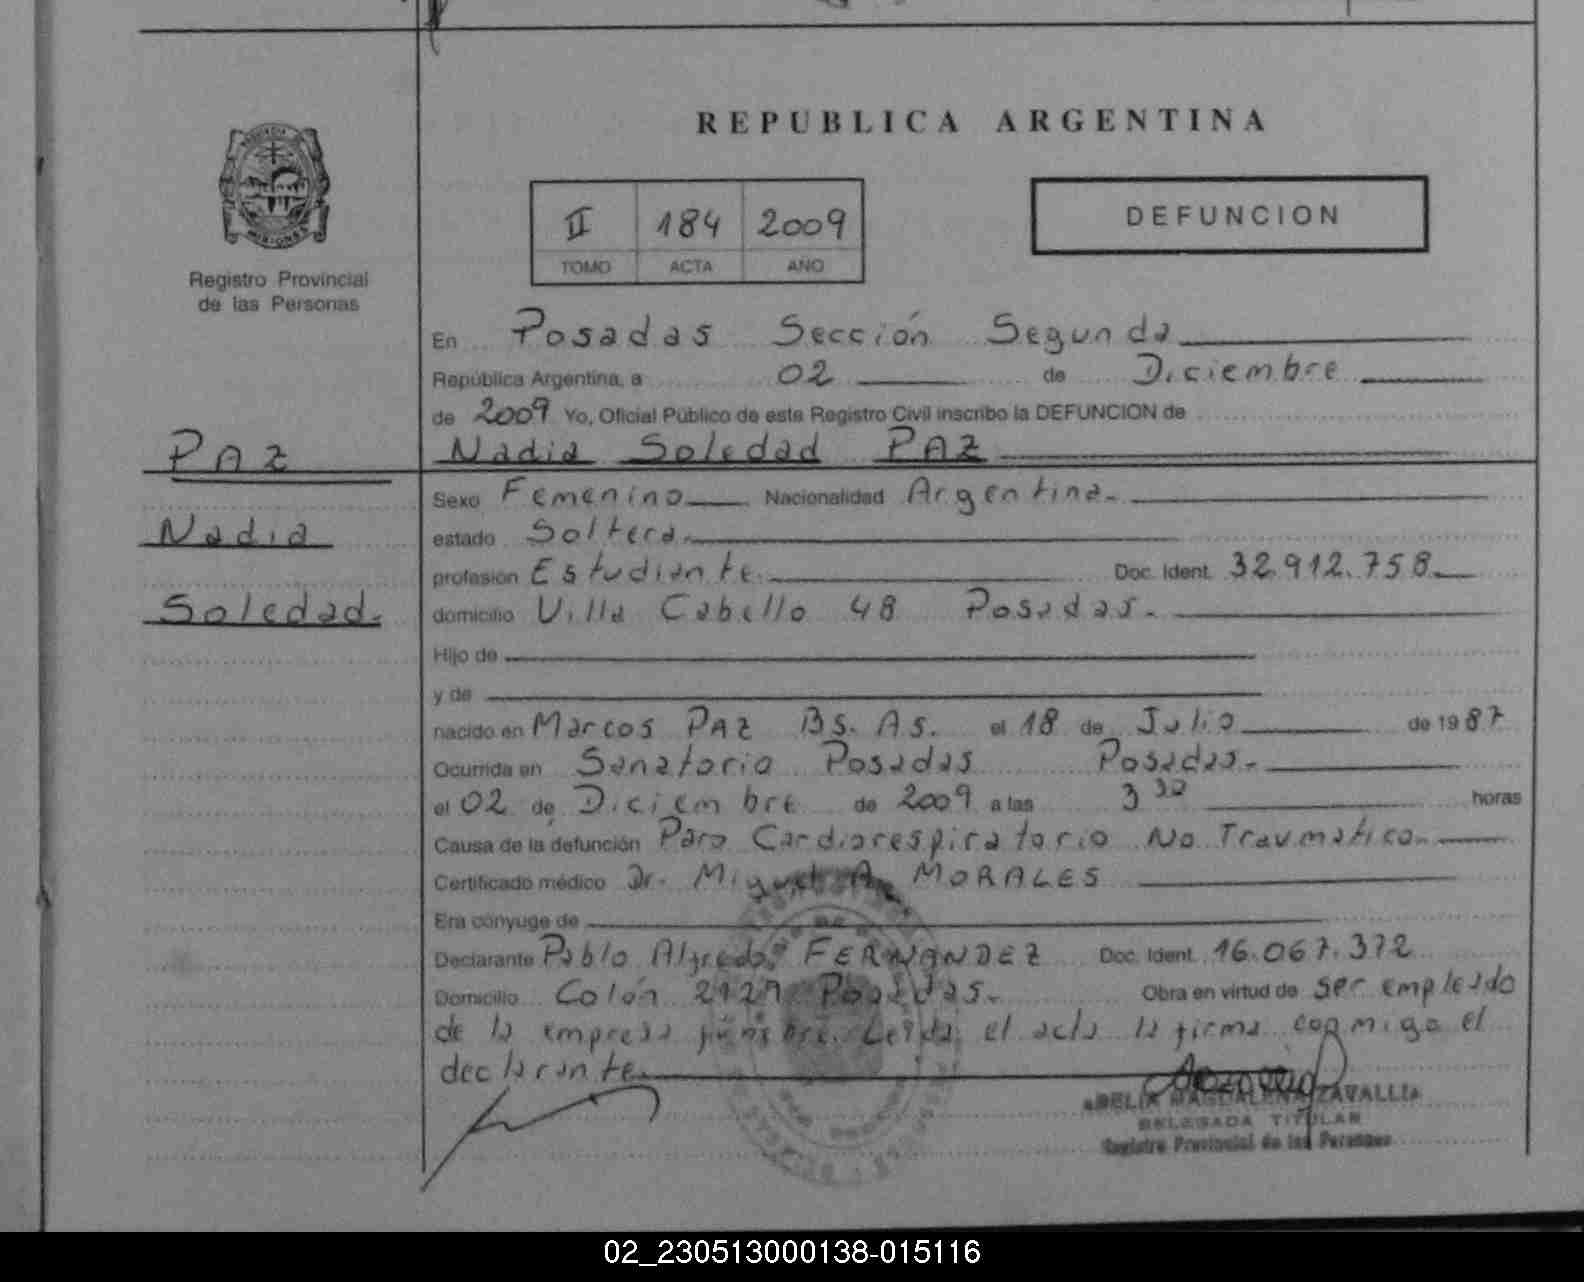 REPUBLICA ARGENTINA
MISIONES
Registro Provincial
de las Personas
II 184 2009
TOMO ACTA AÑO
DEFUNCION
En Posadas Sección Segunda
República Argentina, a 02 de Diciembre
de 2009 Yo, Oficial Público de este Registro Civil inscribo la DEFUNCION de
Nadia Soledad PAZ
PAZ
Nadia
Soledad.
Sexo Femenino Nacionalidad Argentina.
estado Soltera.
profesión Estudiante. Doc. Ident. 32.912.758
domicilio Villa Cabello 48 Posadas.
Hijo de
y de
nacido en Marcos PAZ Bs. As. el 18 de Julio de 1987
Ocurrida en Sanatorio Posadas Posadas.
el 02 de Diciembre de 2009 a las 3 30 horas
Causa de la defunción Paro Cardiorespiratorio No Traumatico.
Certificado médico Dr. Miguel A. MORALES
Era cónyuge de
Declarante Pablo Alfredo FERNANDEZ Doc. Ident. 16.067.372
Domicilio Colón 2127 Posadas. Obra en virtud de ser empleado
de la empresa fúnebre. Leída el acta la firma conmigo el
declarante.
MAGDALENA ZAVALLIA
DELEGADA TITULAR
Registro Provincial de las Personas
02_230513000138-015116